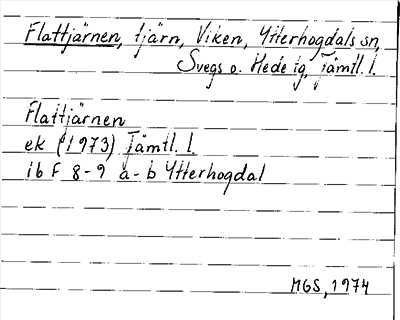 Flattjärnen, tjärn, Viken, Ytterhogdals sn,
Svegs o. Hede tg, Jämtl. l.
Flattjärnen
ek (1973) Jämtl. l.
ib F 8-9 a-b Ytterhogdal
MGS, 1974